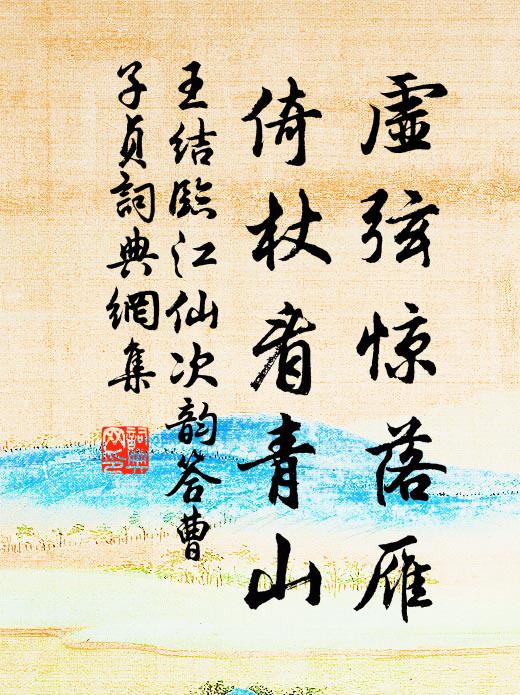 虚弦惊落雁
倚杖看青山
王结临江仙次韵答曹
子贞词典网集